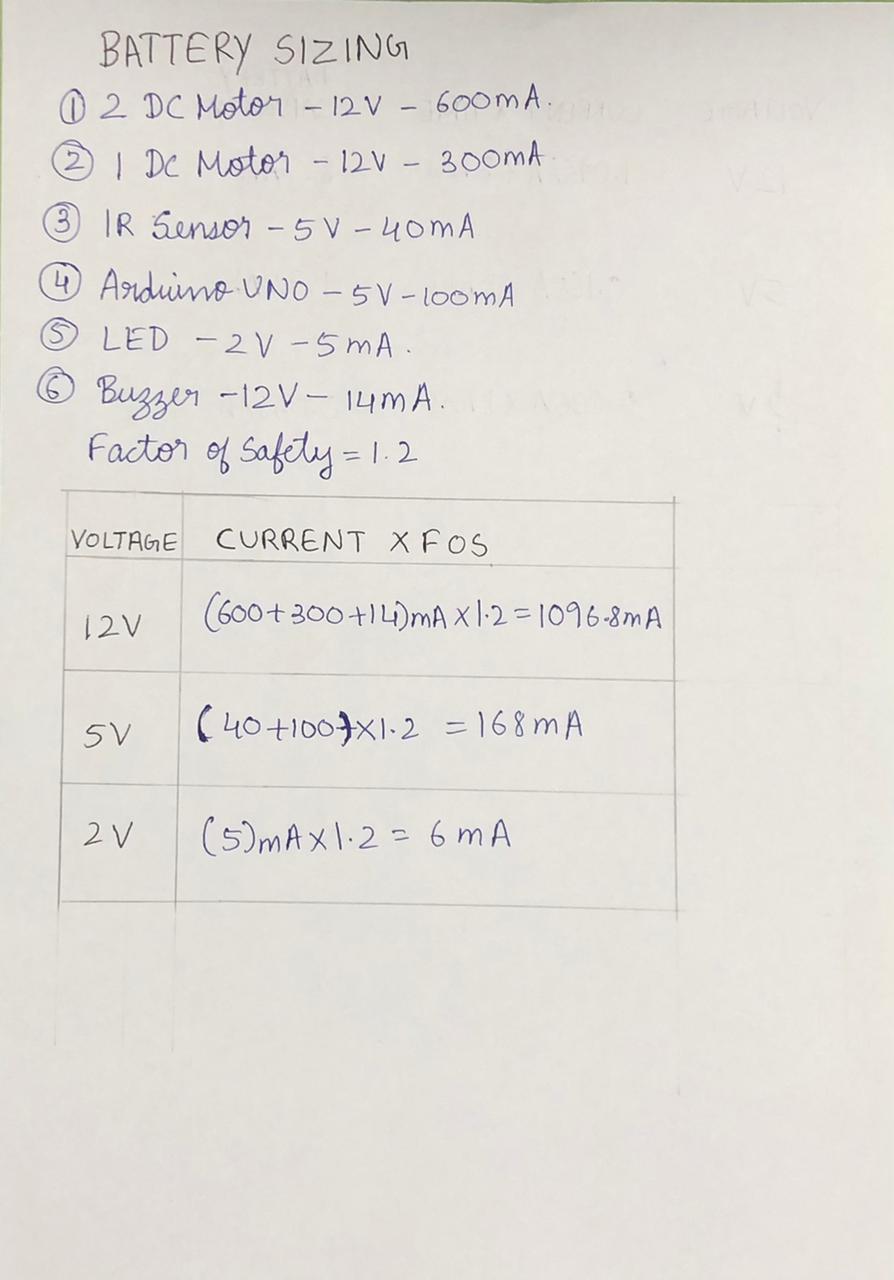 BATTERY SIZING
① 2 DC Motor - 12V - 600mA.
② 1 DC Motor - 12V - 300mA
③ IR Sensor - 5V - 40mA
④ Arduino UNO - 5V - 100mA
⑤ LED - 2V - 5mA.
⑥ Buzzer - 12V - 14mA.
Factor of Safety = 1.2
VOLTAGE CURRENT X FOS
12V (600+300+14)mA X 1.2 = 1096.8mA
5V (40+100)X1.2 = 168mA
2V (5)mA X 1.2 = 6mA